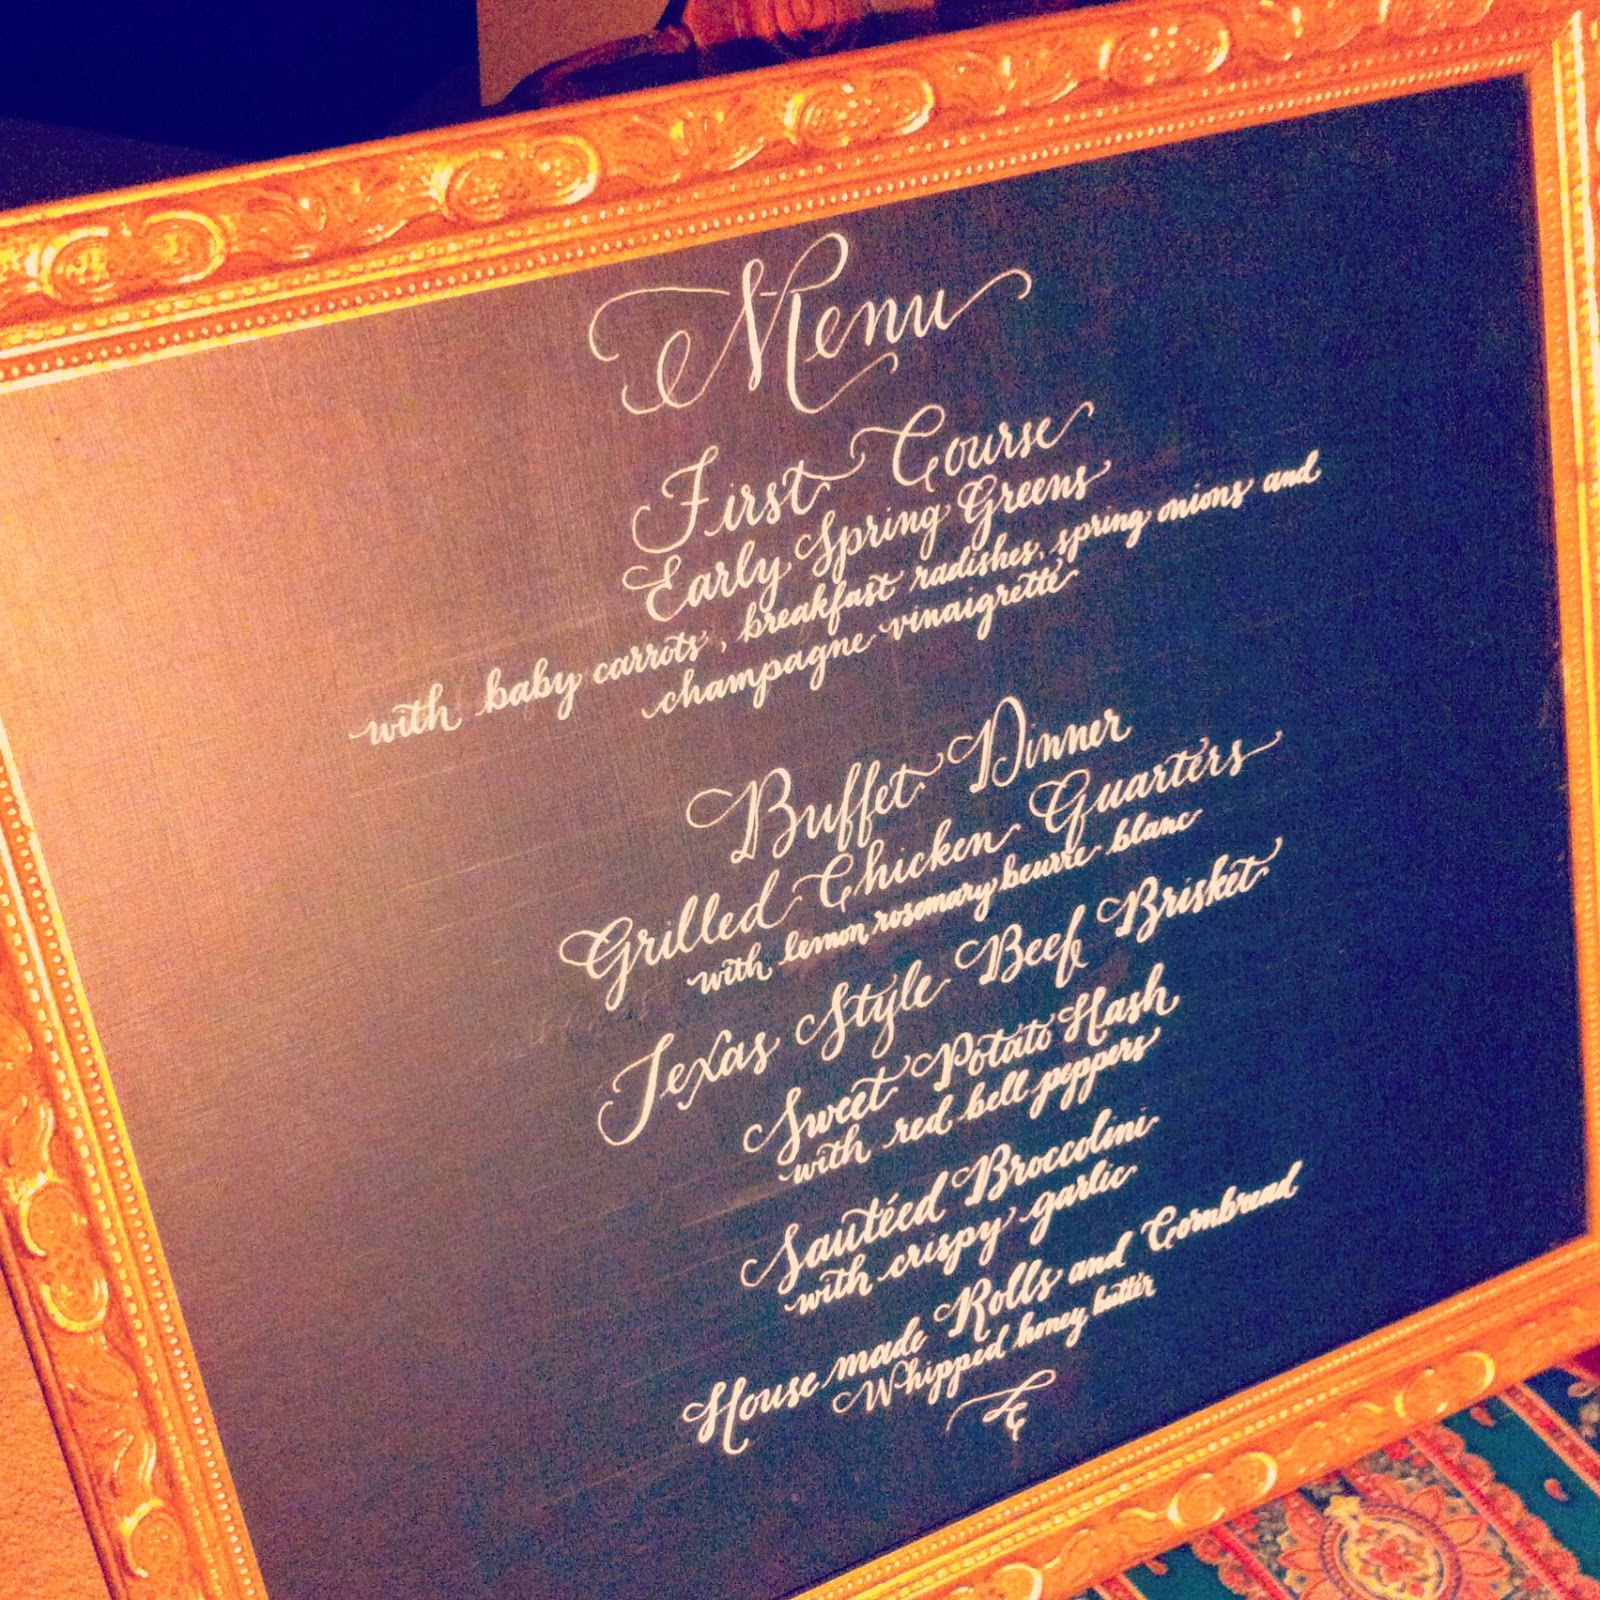 Menu
First Course
Early Spring Greens
with baby carrots, breakfast radishes, spring onions and
champagne vinaigrette
Buffet Dinner
Grilled Chicken Quarters
with lemon rosemary beurre blanc
Texas Style Beef Brisket
Sweet Potato Hash
with red bell peppers
Sautéed Broccolini
with crispy garlic
House made Rolls and Cornbread
Whipped honey butter